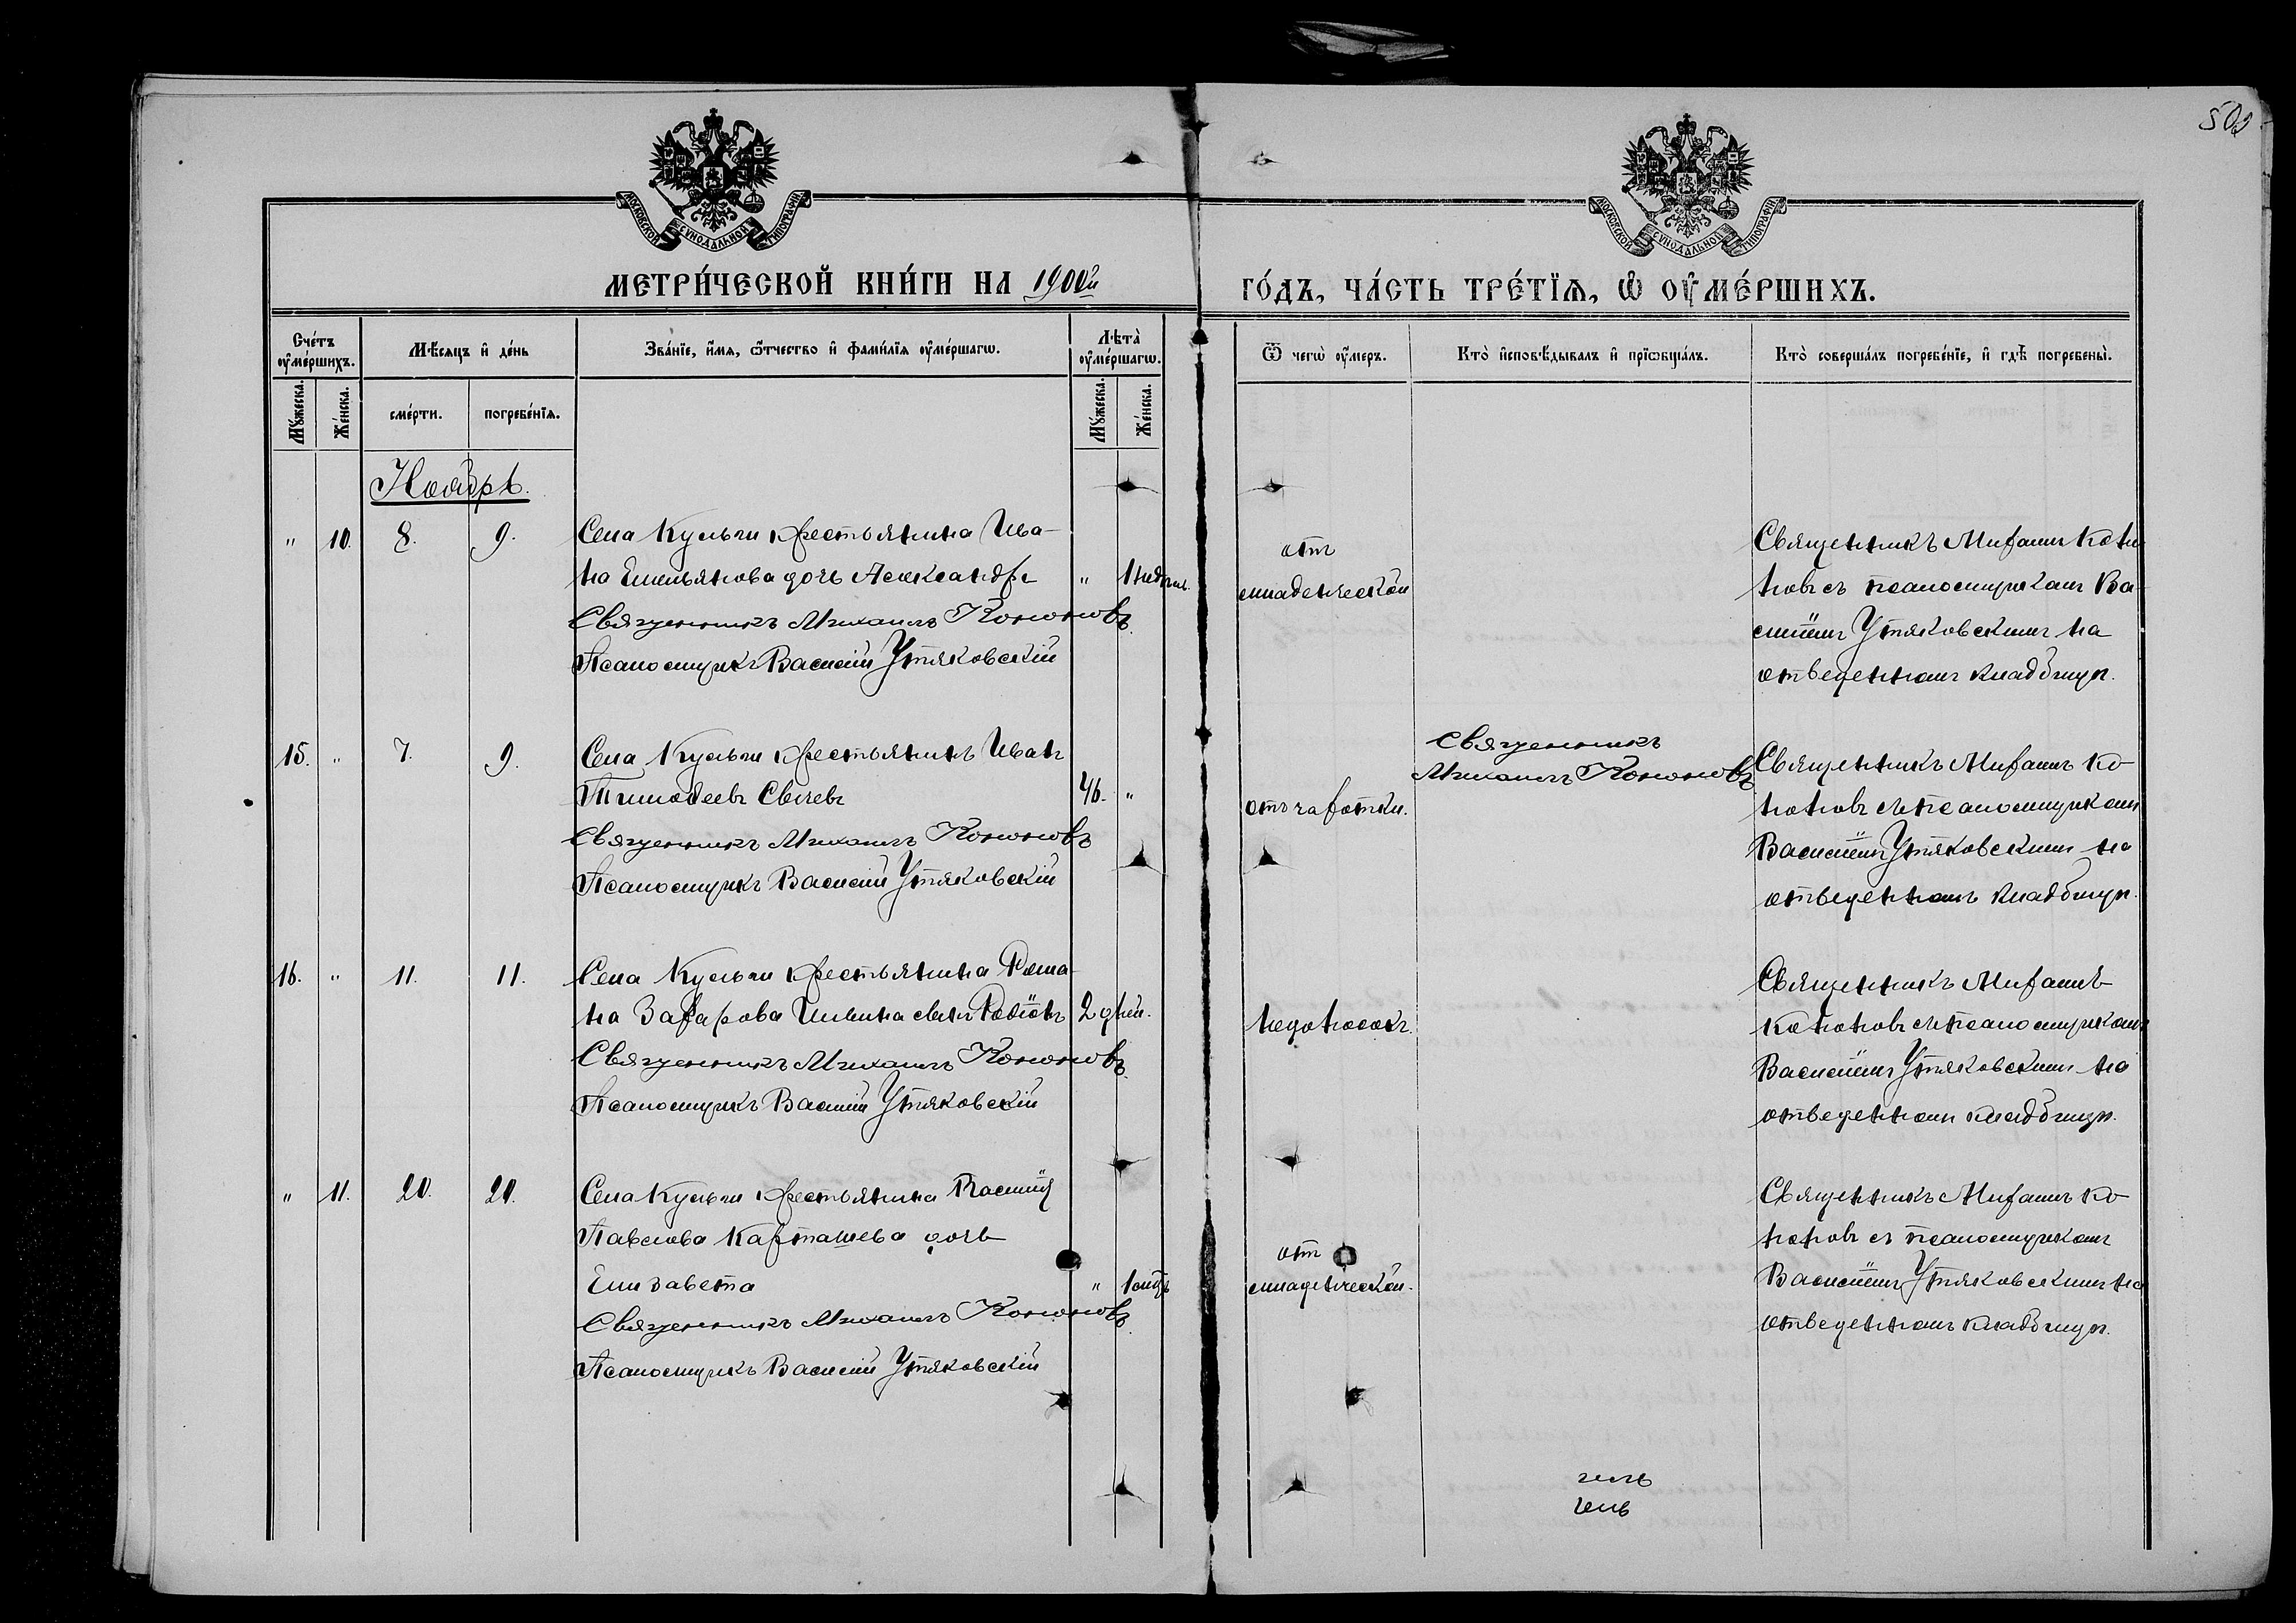 509
МОСКОВСКОЙ СѴНОДАЛЬНОЙ ТИПОГРАФІИ
МОСКОВСКОЙ СѴНОДАЛЬНОЙ ТИПОГРАФІИ
МЕТРИ́ЧЕСКОЙ КНИ́ГИ НА 1900й
ГО́ДЪ, ЧА́СТЬ ТРЕ́ТЇѦ, Ѽ ОУ҆МЕ́РШИХЪ.
Сче́тъ оу҆ме́ршихъ.
Мѣ́сяцъ и҆ де́нь
Зва́нїе, и҆́мѧ, ѻ҆́тчество и҆ фами́лїѧ оу҆ме́ршагѡ.
Лѣта̀ оу҆ме́ршагѡ.
Ѿ чегѡ̀ оу҆́меръ.
Кто̀ и҆сповѣ́дывалъ и҆ прїѡбща́лъ.
Кто̀ соверша́лъ погребе́нїе, и҆ гдѣ̀ погребены̀.
Мꙋ́жеска.
Же́нска.
сме́рти.
погребе́нїѧ.
Мꙋ́жеска.
Же́нска.
Ноябрь.
" 10. 8. 9. Села Кульчи крестьянина Ива-
на Емельянова дочь Александра " 1 недѣли.
Священникъ Михаилъ Кононовъ
Псаломщикъ Василій Утяковскій
отъ
младенческой
Священникъ Михаилъ Коно
новъ съ псаломщикомъ Ва-
силіемъ Утяковскимъ на
отведенномъ кладбищѣ.
15. " 7. 9. Села Кульчи крестьянинъ Иванъ
Тимофеевъ Свичевъ 46. "
Священникъ Михаилъ Кононовъ
Псаломщикъ Василій Утяковскій
отъ чахотки.
Священникъ
Михаилъ Кононовъ
Священникъ Михаилъ Ко-
ноновъ съ псаломщикомъ
Василіемъ Утяковскимъ на
отведенномъ кладбищѣ.
16. " 11. 11. Села Кульчи крестьянина Рома-
на Захарова Ильина сынъ Родіонъ 2 дней.
Священникъ Михаилъ Кононовъ
Псаломщикъ Василій Утяковскій
недоносокъ.
Священникъ Михаилъ
Кононовъ съ псаломщикомъ
Василіемъ Утяковскимъ на
отведенномъ кладбищѣ.
" 11. 20. 20. Села Кульчи крестьянина Василія
Павлова Карташева дочь
Елизавета "
Священникъ Михаилъ Кононовъ
Псаломщикъ Василій Утяковскій
отъ
младенческой.
Священникъ Михаилъ Ко-
ноновъ съ псаломщикомъ
Василіемъ Утяковскимъ на
отведенномъ кладбищѣ.